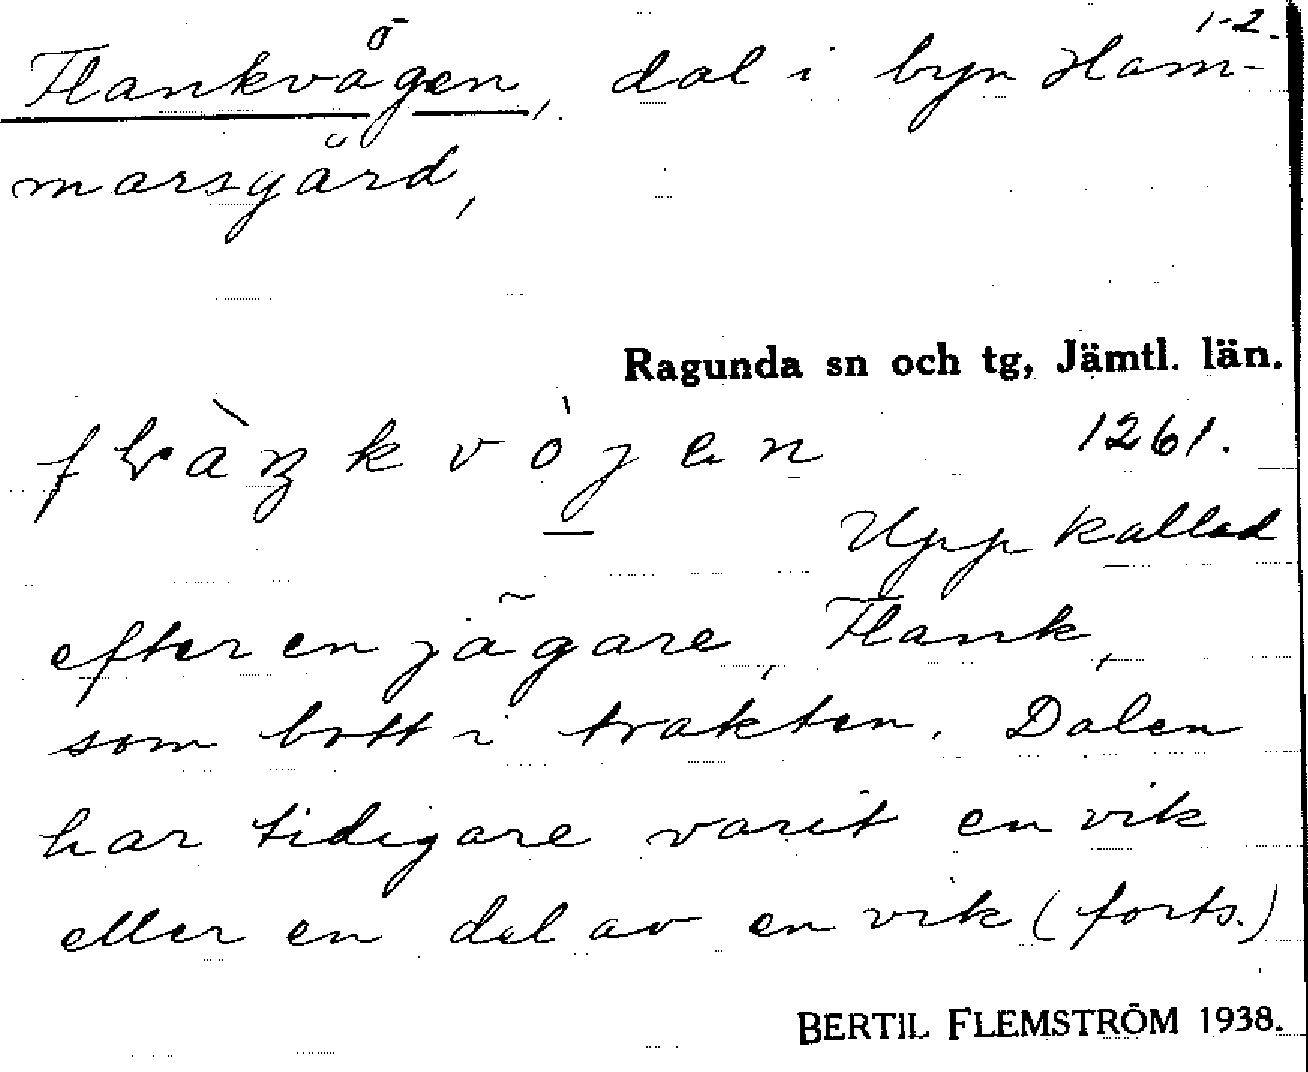 1-2.
Flankvågen, dal i byn Ham-
marsgård,
Ragunda sn och tg, Jämtl. län.
1261.
Uppkallad
efter en jägare, Flank,
som bott i trakten. Dalen
har tidigare varit en vik
eller en del av en vik (forts.)
BERTIL FLEMSTRÖM 1938.